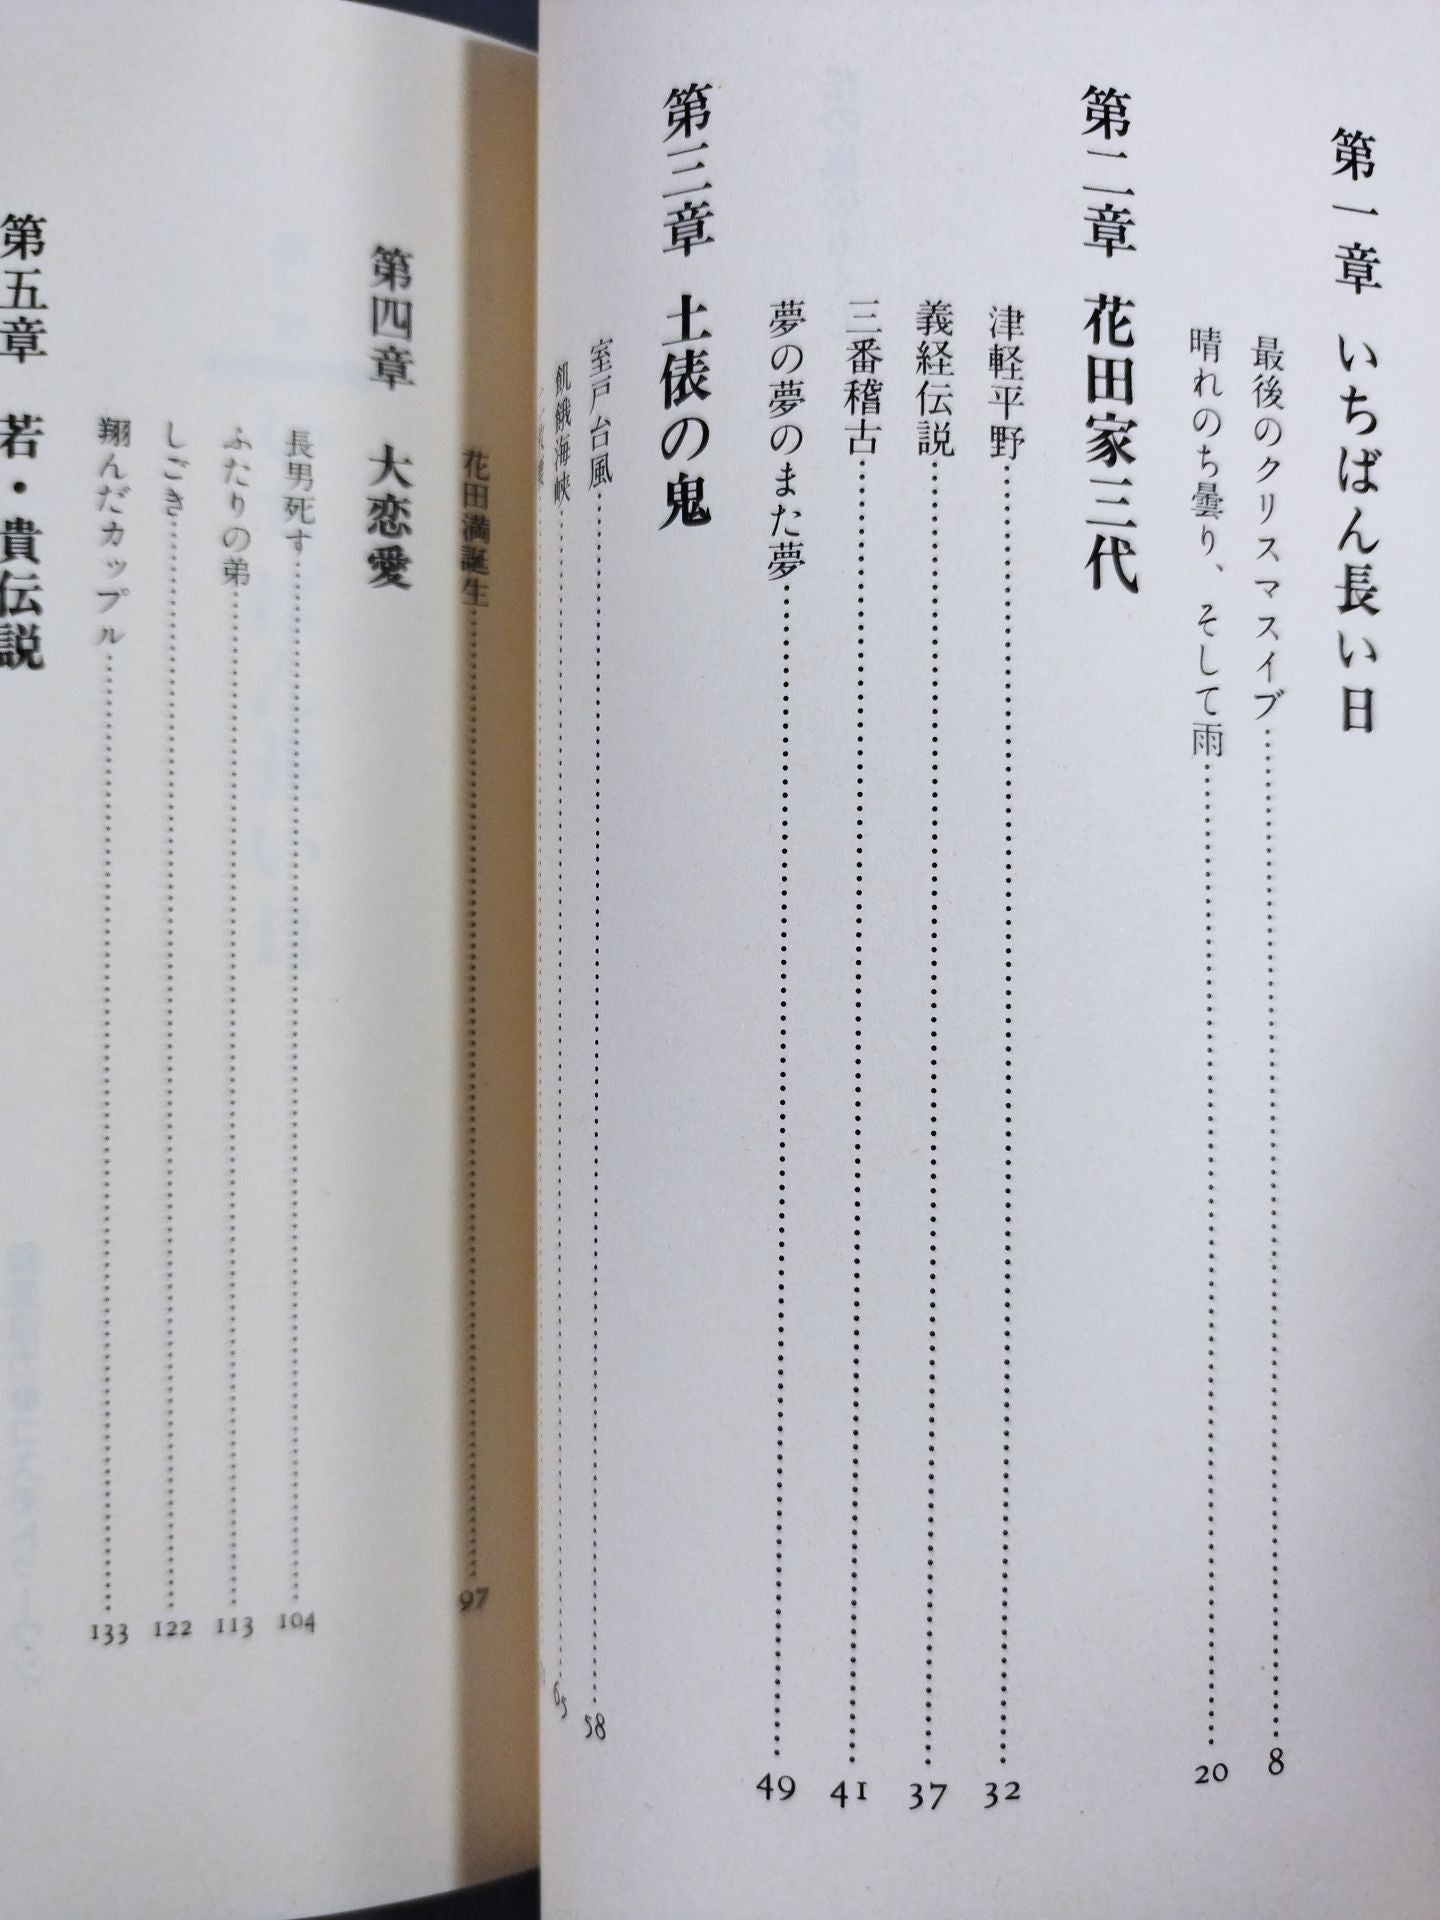 第一章 いちばん長い日
最後のクリスマスイブ 8
晴れのち曇り、そして雨 20
第二章 花田家三代
津軽平野 32
義経伝説 37
三番稽古 41
夢の夢のまた夢 49
第三章 土俵の鬼
室戸台風 58
飢餓海峡 65
花田満誕生 97
第四章 大恋愛
長男死す 104
ふたりの弟 113
しごき 122
翔んだカップル 133
第五章 若・貴伝説